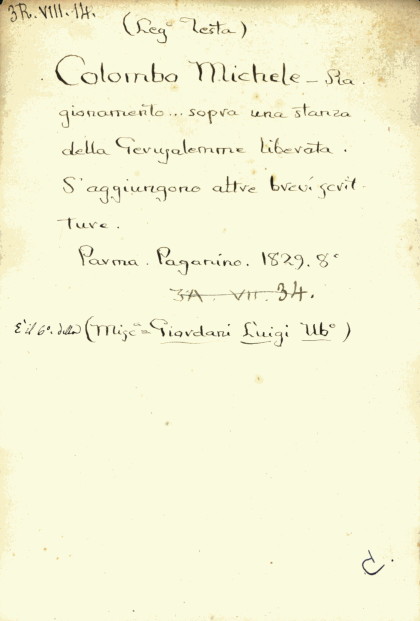 3R. VIII. 14.
(Leg° Testa)
Colombo Michele - Ra
gionamento... sopra una stanza
della Gerusalemme liberata.
S'aggiungono altre brevi scrit-
ture.
Parma. Paganino. 1829. 8°
3A. VII. 34.
È il 6°. della (Misc.ª = Giordani Luigi Ub°)
C.